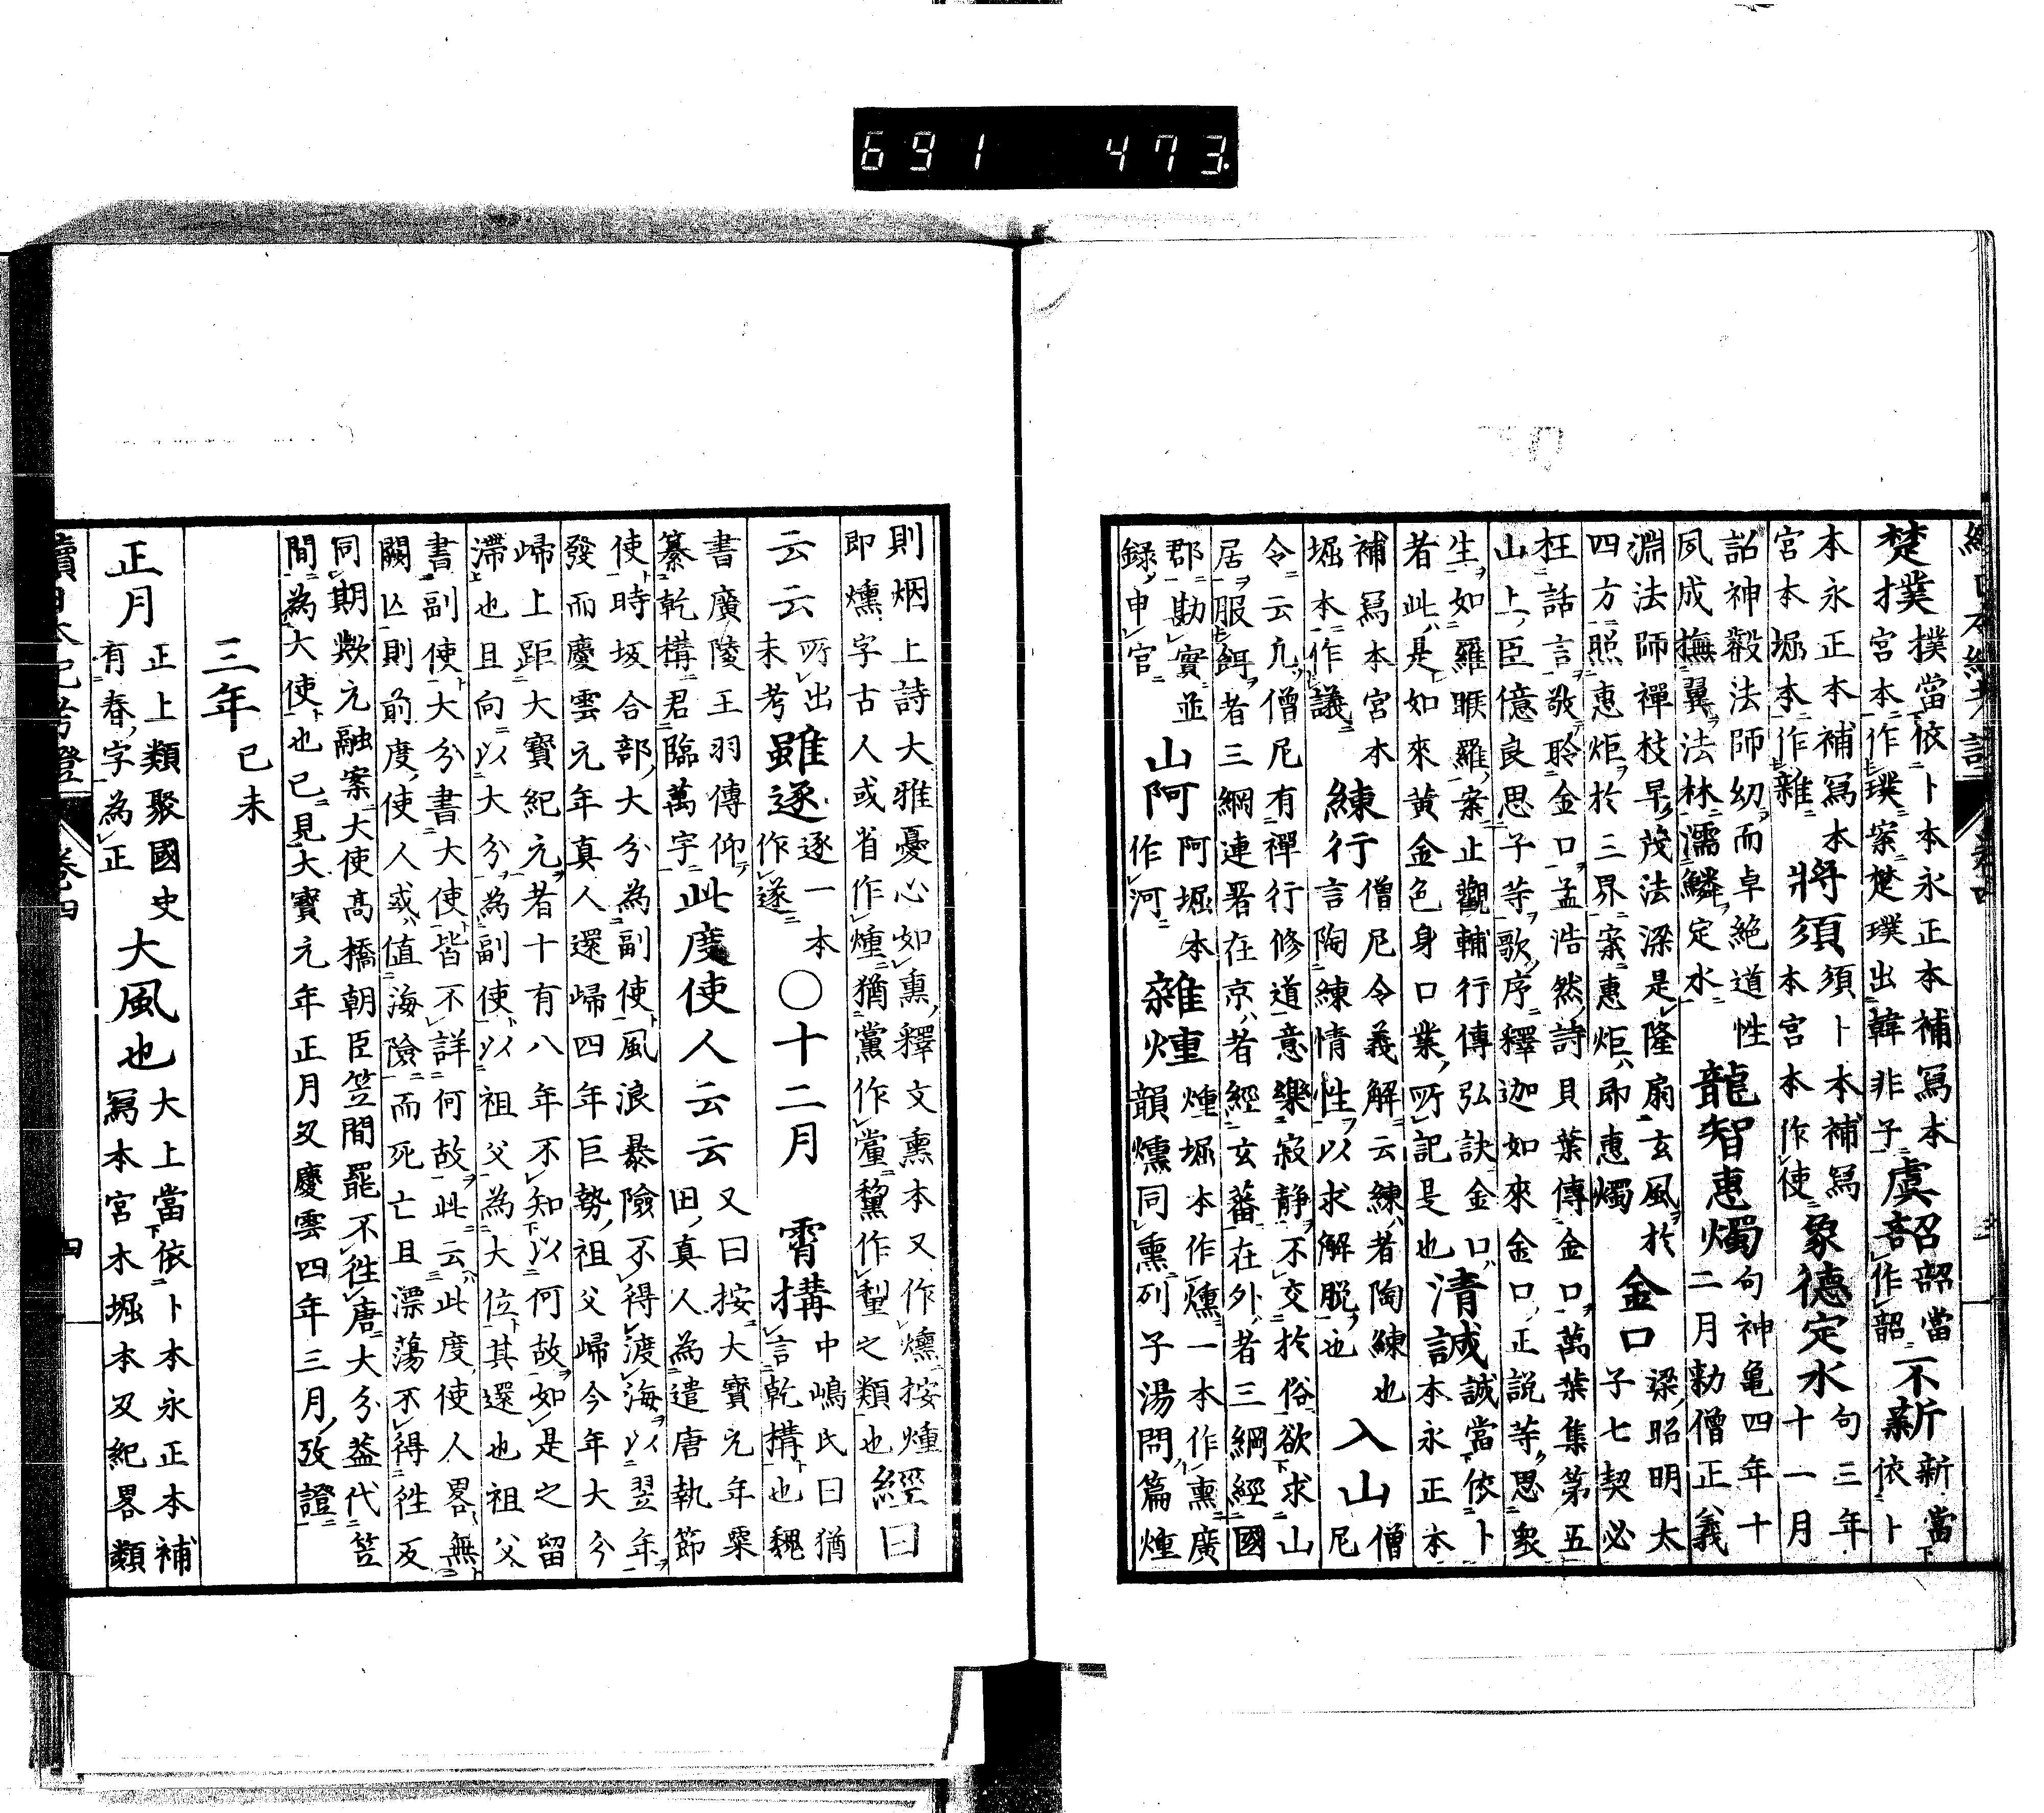 691 473
續日本紀考證 卷四 三
楚撲 撲當依卜本永正本補寫本
宮本作璞案楚璞出韓非子 虞詔 詔當作韶 不薪 薪當依卜
本永正本補寫本
宮本堀本作雜 將須 須卜本補寫
本宮本作使 象德定水 句三年十一月
詔神叡法師幼而卓絶道性
夙成撫翼法林濡鱗定水 龍智惠燭 句神龜四年十
二月勅僧正義
淵法師禪枝早茂法梁是隆扇玄風於
四方照惠炬於三界案惠炬即惠燭 金口 梁昭明太
子七契必
枉話言敬聆金口孟浩然詩貝葉傳金口萬葉集第五
山上臣億良思子等歌序釋迦如來金口正說等思衆
生如羅睺羅案止觀輔行傳弘決金口
者此是如來黃金色身口業所記是也 清誠 誠當依卜
本永正本
補寫本宮本
堀本作議 練行 僧尼令義解云練者陶練也
言陶練情性以求解脫也 入山 僧尼
令云凡僧尼有禪行修道意樂寂靜不交於俗欲求山
居服餌者三綱連署在京者經玄蕃在外者三綱經國
郡勘實並
録申官 山阿 阿堀本
作河 雜煄 煄堀本作燻一本作熏廣
韻燻同熏列子湯問篇煄
則烟上詩大雅憂心如熏釋文熏本又作燻按煄
即燻字古人或省作煄猶黨作黨黧作犁之類也 經曰
云云 所出
未考 雖逐 逐一本
作遂 ○十二月 霄搆 中嶋氏曰猶
言乾構也魏
書廣陵王羽傳仰
纂乾構君臨萬宇 此度使人云云 又曰按大寶元年粟
田真人爲遣唐執節
使時坂合部大分爲副使風浪暴險不得渡海以翌年
發而慶雲元年真人還歸四年巨勢祖父歸今年大分
歸上距大寶紀元者十有八年不知以何故如是之留
滯也且向以大分爲副使以祖父爲大位其還也祖父
書副使大分書大使皆不詳何故此云此度使人畧無
闕亡則前度使人或值海險而死亡且漂蕩不得往反
同期歟元融案大使高橋朝臣笠間罷不往唐大分蓋代笠
間爲大使也已見大寶元年正月及慶雲四年三月攷證
三年 己未
正月 正上類聚國史
有春字爲正 大風也 大上當依卜本永正本補
寫本宮本堀本及紀畧類
續日本紀考證 卷四 四